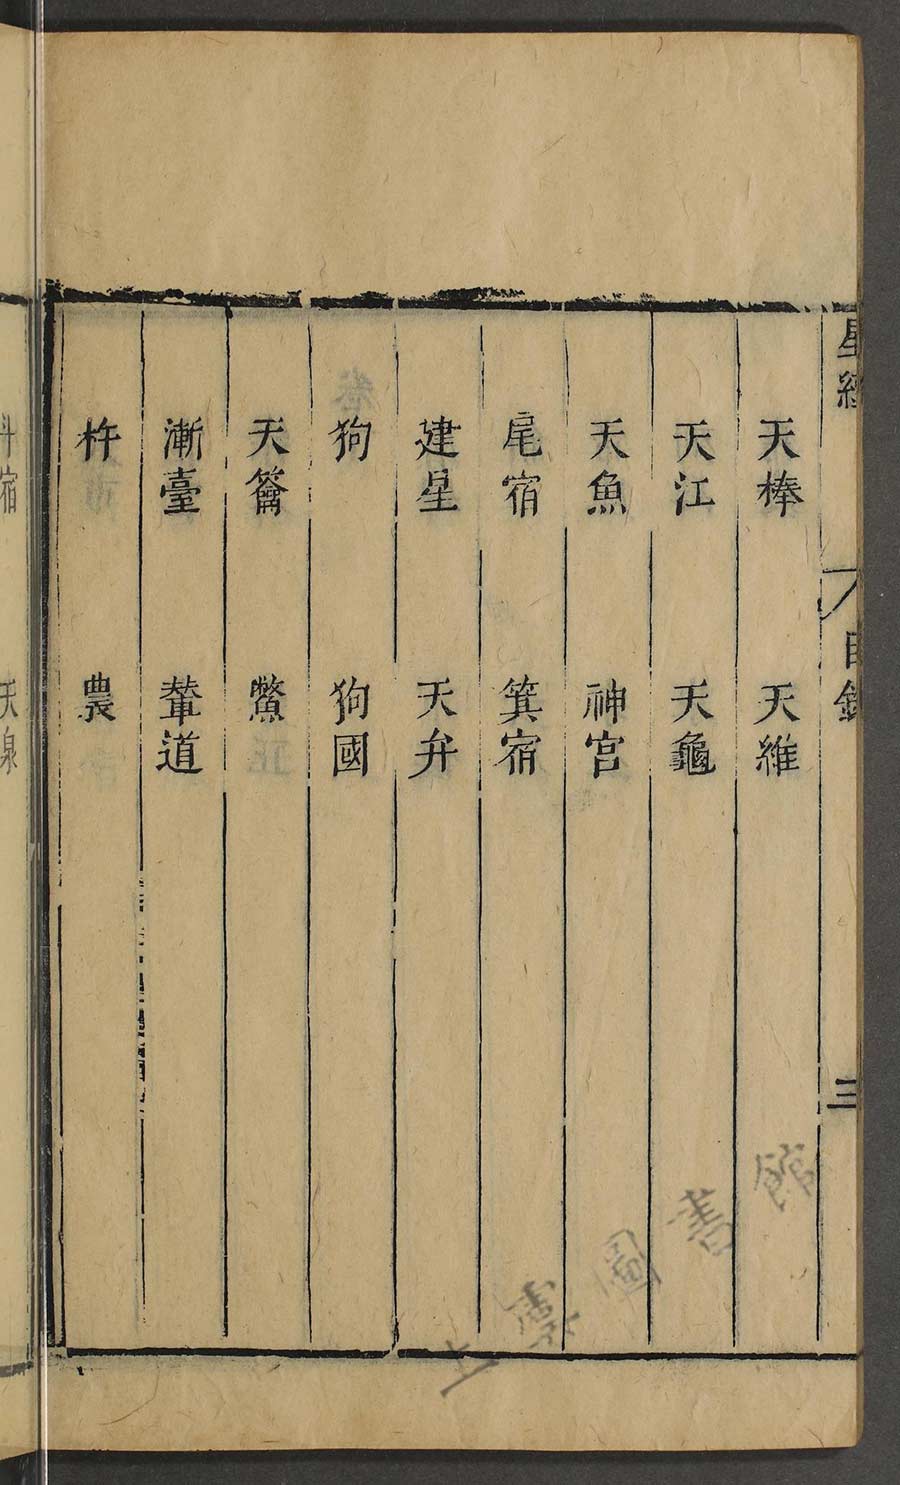 星經
目錄
三
天棒 天維
天江 天龜
天魚 神宫
尾宿 箕宿
建星 天弁
狗 狗國
天籥 鱉
漸臺 輦道
杵 農
斗宿 天泉
上虞圖書館